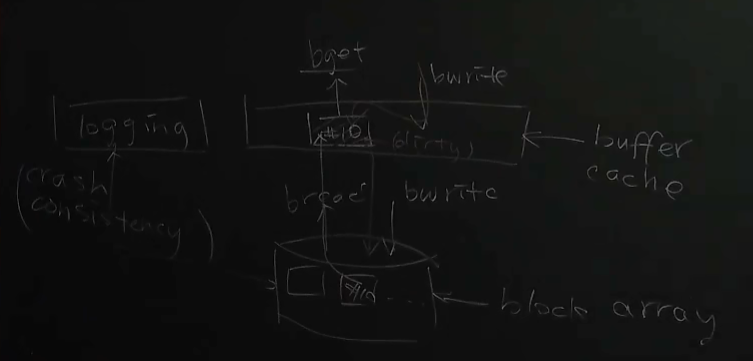 bget
bwrite
logging
#10
(dirty)
buffer
cache
(crash
consistency)
bread
bwrite
#10
....
block array